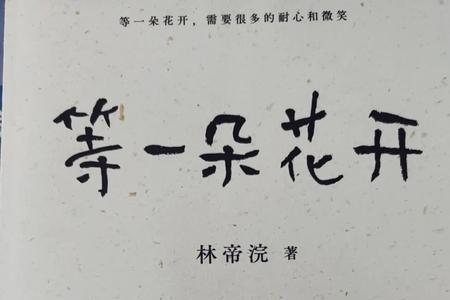 等一朵花开，需要很多的耐心和微笑
等一朵花开
林帝浣 著